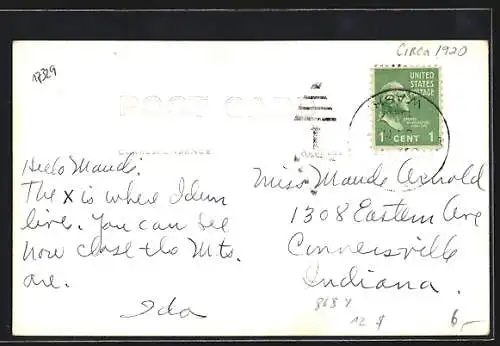 Circa 1920
17329
POST CARD
CORRESPONDENCE
UNITED
STATES
POSTAGE
1 CENT 1
WASH
Hello Maude.
The X is where I
live. You can see
how close the Mts.
are.
Ida
Miss Maude Arnold
1308 Eastern Ave
Connersville
Indiana.
12 $
6-